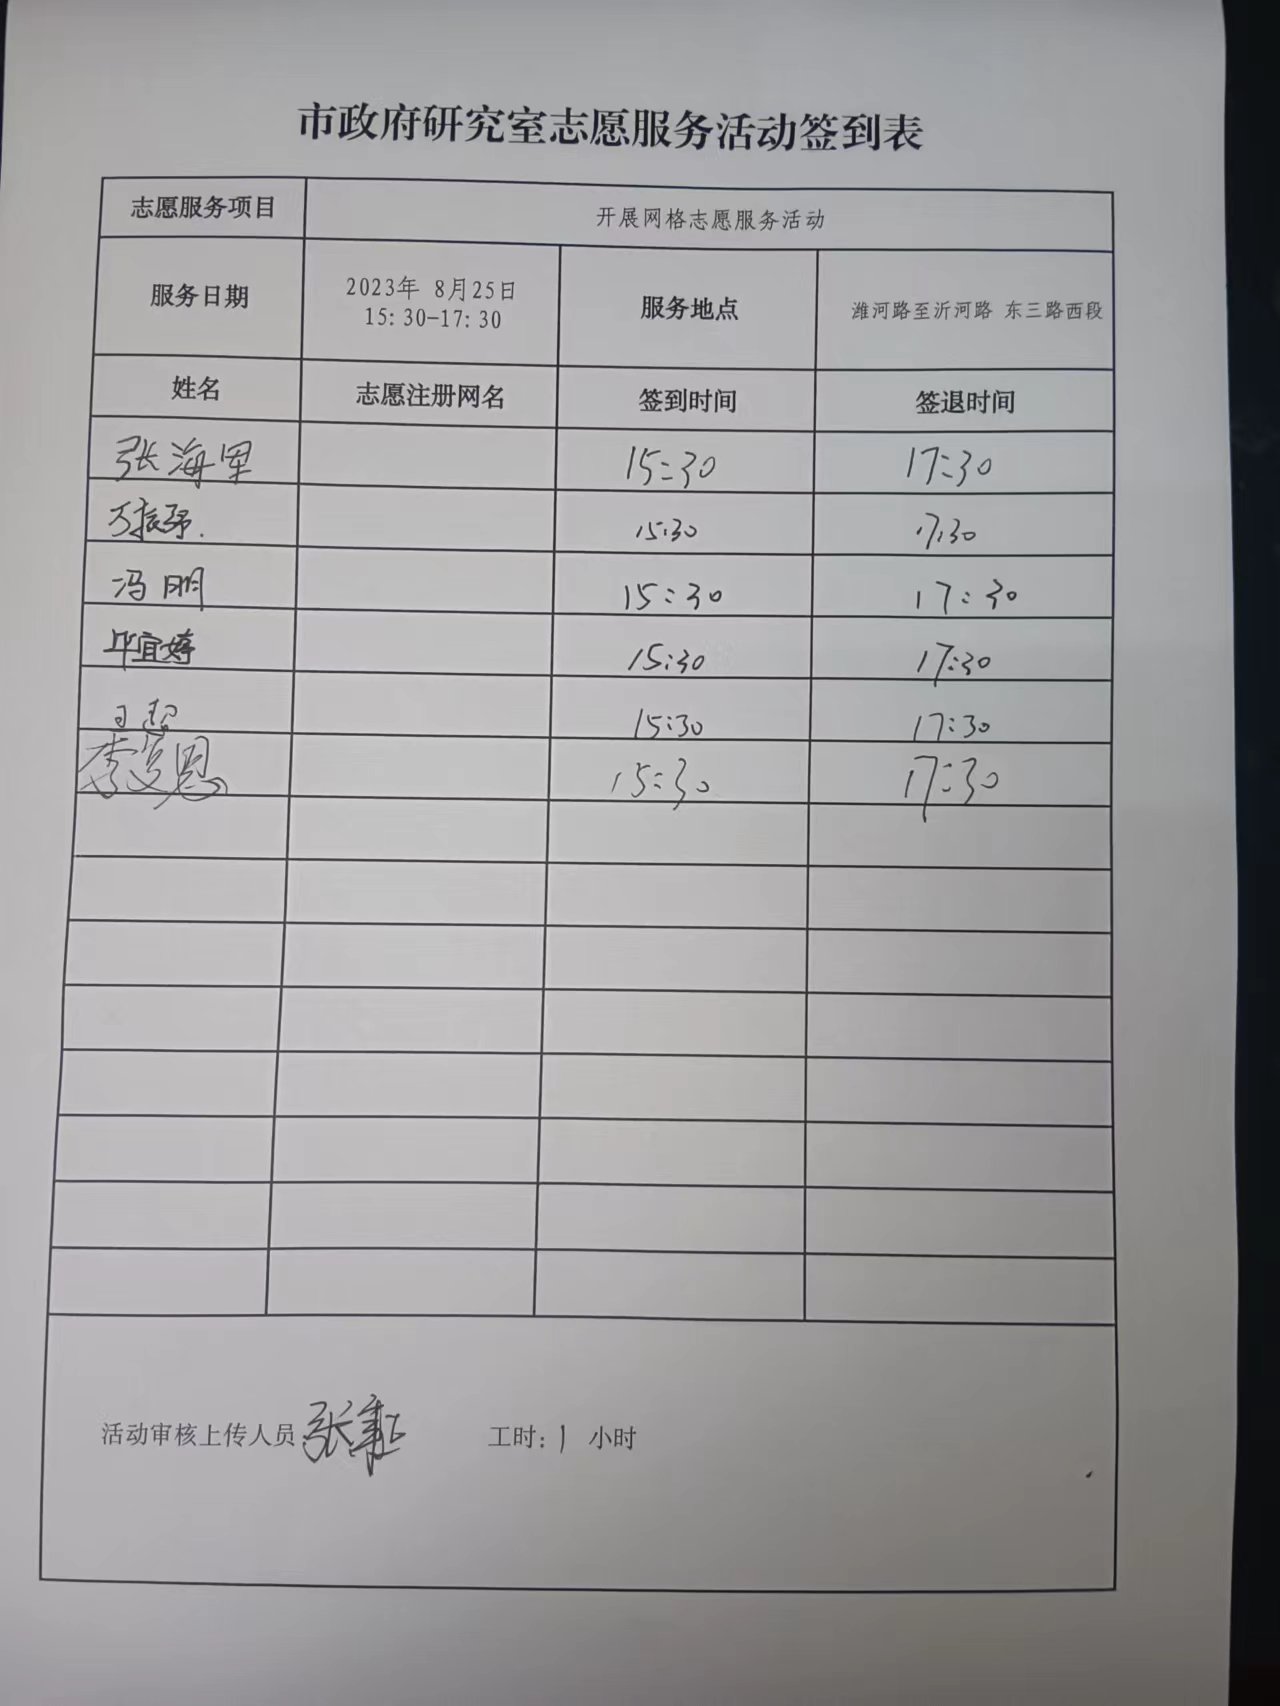 市政府研究室志愿服务活动签到表
志愿服务项目 开展网格志愿服务活动
服务日期 2023年 8月25日 15:30-17:30 服务地点 潍河路至沂河路 东三路西段
姓名 志愿注册网名 签到时间 签退时间
张海军 15:30 17:30
15:30 17:30
冯明 15:30 17:30
毕宜婷 15:30 17:30
王超 15:30 17:30
李 恩 15:30 17:30
活动审核上传人员 张 工时: 1 小时